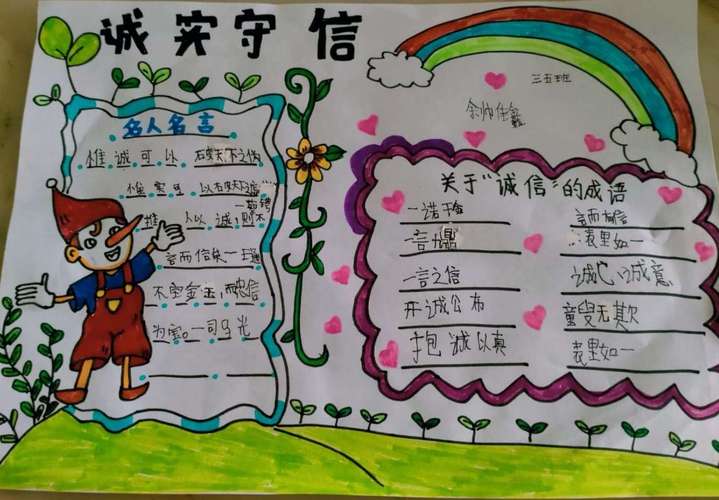 诚实守信
三五班
名人名言
惟诚可以破天下之伪
惟实可以破天下虚
推人以诚则不
言而信
不宝金玉,而忠信
为宝。一司马光
关于"诚信"的成语
一诺千金
言而有信
一言九鼎
表里如一
一言之信
诚心诚意
开诚公布
童叟无欺
抱诚以真
表里如一